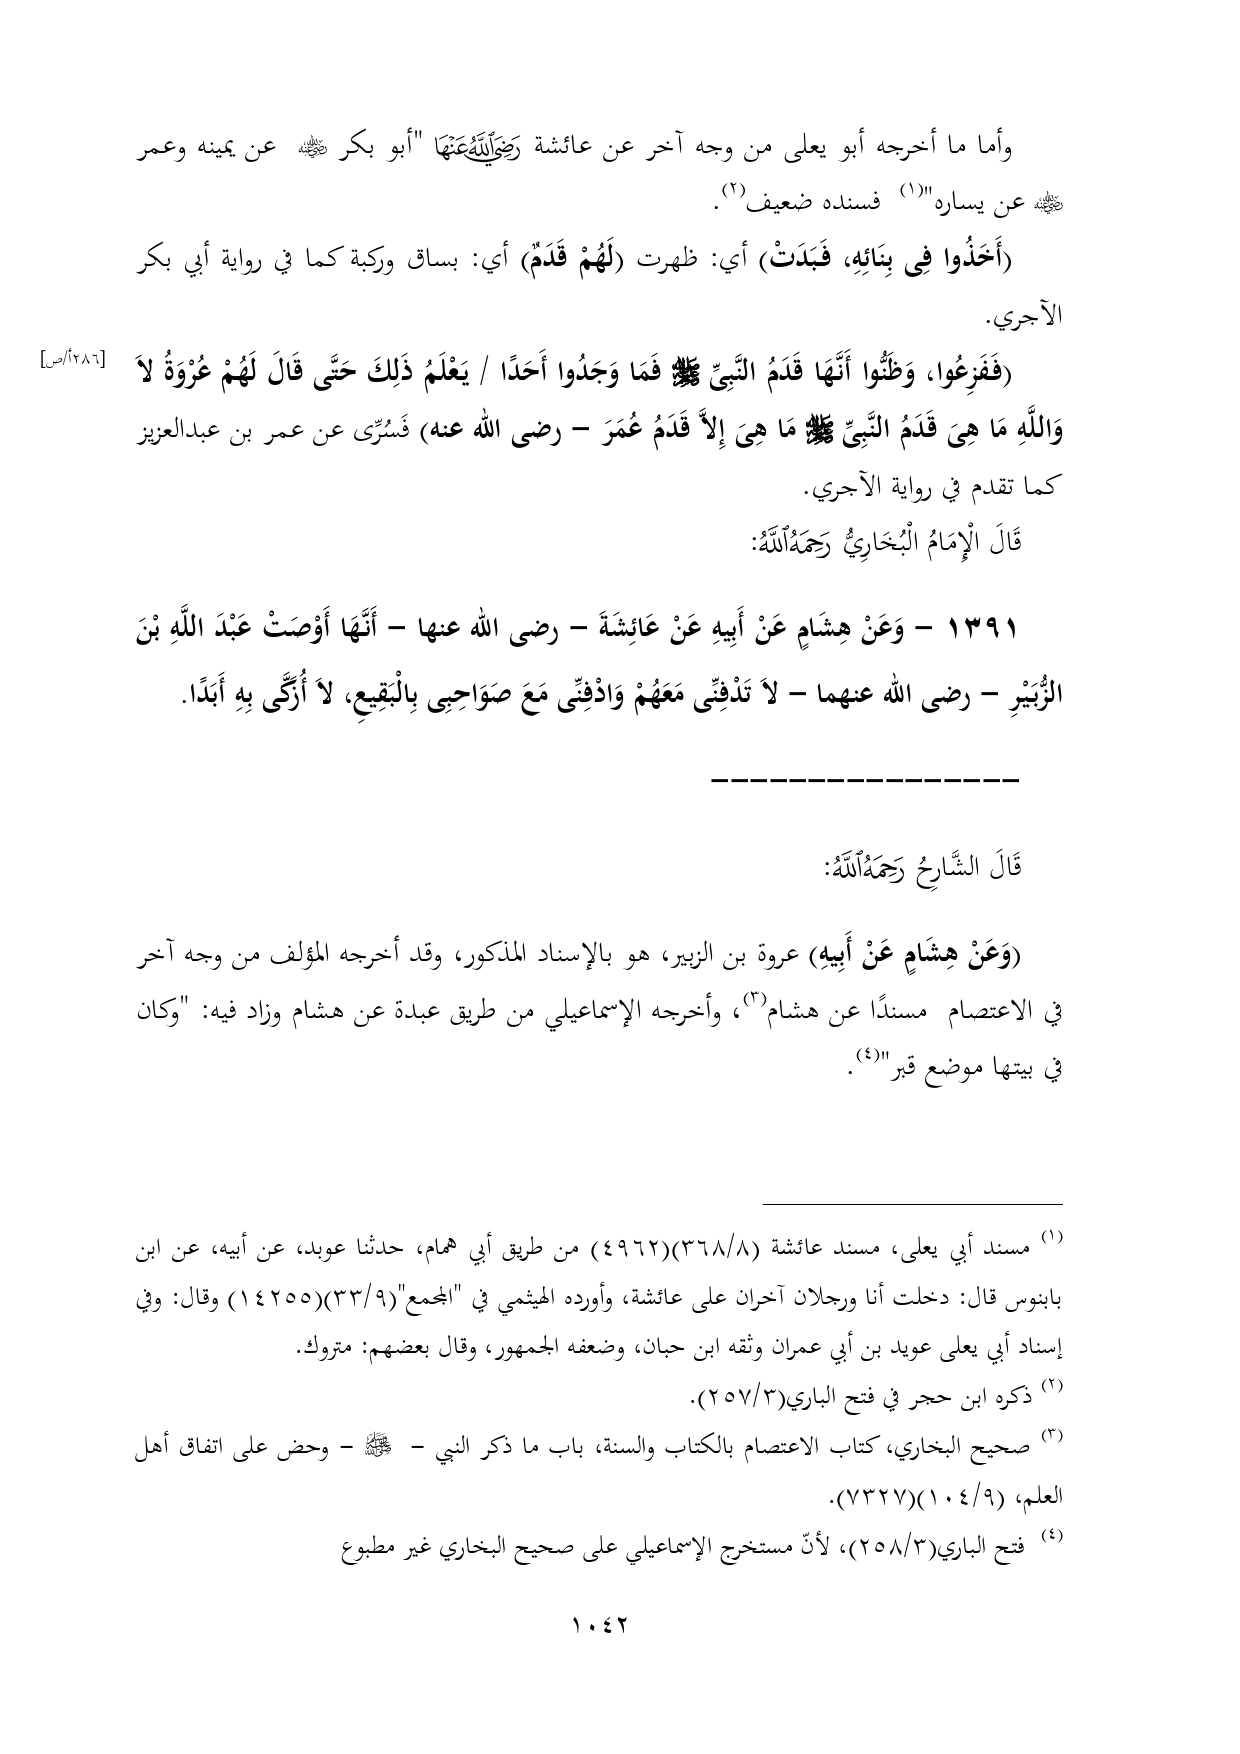 وأما ما أخرجه أبو يعلى من وجه آخر عن عائشة رَضِيَ ٱللَّهُ عَنْهَا "أبو بكر رضي الله عنه عن يمينه وعمر
رضي الله عنه عن يساره"(١) فسنده ضعيف(٢).
(أَخَذُوا فِى بِنَائِهِ، فَبَدَتْ) أي: ظهرت (لَهُمْ قَدَمٌ) أي: بساق وركبة كما في رواية أبي بكر
الآجري.
(فَفَزِعُوا، وَظَنُّوا أَنَّهَا قَدَمُ النَّبِىِّ ﷺ فَمَا وَجَدُوا أَحَدًا / يَعْلَمُ ذَلِكَ حَتَّى قَالَ لَهُمْ عُرْوَةُ لاَ
[٢٨٦أ/ص]
وَاللَّهِ مَا هِىَ قَدَمُ النَّبِىِّ ﷺ مَا هِىَ إِلاَّ قَدَمُ عُمَرَ – رضى الله عنه) فَسُرِّى عن عمر بن عبدالعزيز
كما تقدم في رواية الآجري.
قَالَ الْإِمَامُ الْبُخَارِيُّ رَحِمَهُ ٱللَّهُ:
١٣٩١ – وَعَنْ هِشَامٍ عَنْ أَبِيهِ عَنْ عَائِشَةَ – رضى الله عنها – أَنَّهَا أَوْصَتْ عَبْدَ اللَّهِ بْنَ
الزُّبَيْرِ – رضى الله عنهما – لاَ تَدْفِنِّى مَعَهُمْ وَادْفِنِّى مَعَ صَوَاحِبِى بِالْبَقِيعِ، لاَ أُزَكَّى بِهِ أَبَدًا.
–––––––––––––––
قَالَ الشَّارِحُ رَحِمَهُ ٱللَّهُ:
(وَعَنْ هِشَامٍ عَنْ أَبِيهِ) عروة بن الزبير، هو بالإسناد المذكور، وقد أخرجه المؤلف من وجه آخر
في الاعتصام مسندًا عن هشام(٣)، وأخرجه الإسماعيلي من طريق عبدة عن هشام وزاد فيه: "وكان
في بيتها موضع قبر"(٤).
(١) مسند أبي يعلى، مسند عائشة (٣٦٨/٨)(٤٩٦٢) من طريق أبي همام، حدثنا عوبد، عن أبيه، عن ابن
بابنوس قال: دخلت أنا ورجلان آخران على عائشة، وأورده الهيثمي في "المجمع"(٣٣/٩)(١٤٢٥٥) وقال: وفي
إسناد أبي يعلى عويد بن أبي عمران وثقه ابن حبان، وضعفه الجمهور، وقال بعضهم: متروك.
(٢) ذكره ابن حجر في فتح الباري(٢٥٧/٣).
(٣) صحيح البخاري، كتاب الاعتصام بالكتاب والسنة، باب ما ذكر النبي – ﷺ – وحض على اتفاق أهل
العلم، (١٠٤/٩)(٧٣٢٧).
(٤) فتح الباري(٢٥٨/٣)، لأنّ مستخرج الإسماعيلي على صحيح البخاري غير مطبوع
١٠٤٢